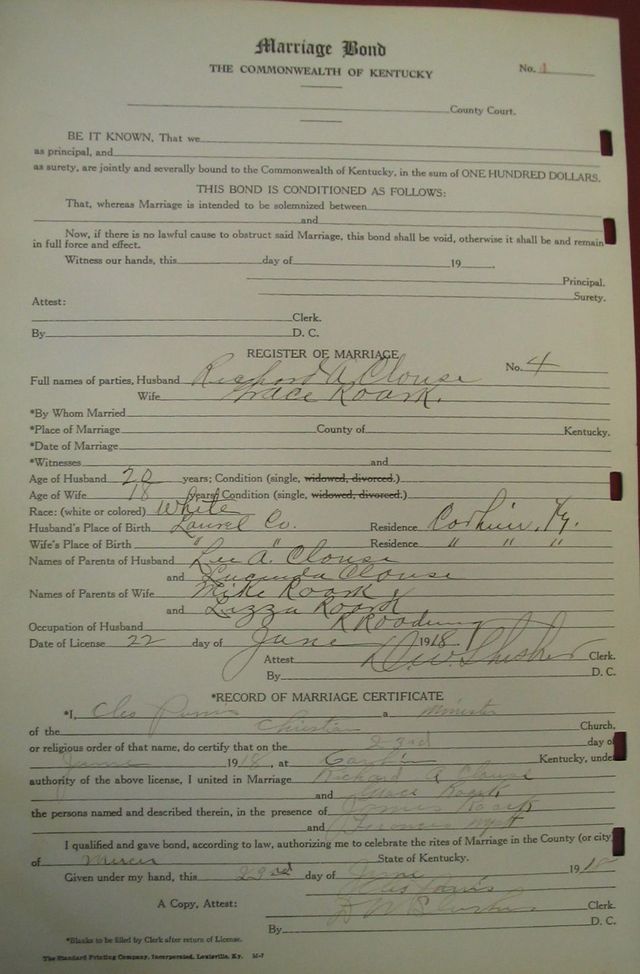 Marriage Bond
THE COMMONWEALTH OF KENTUCKY
No. 1
County Court.
BE IT KNOWN, That we
as principal, and
as surety, are jointly and severally bound to the Commonwealth of Kentucky, in the sum of ONE HUNDRED DOLLARS.
THIS BOND IS CONDITIONED AS FOLLOWS:
That, whereas Marriage is intended to be solemnized between
and
Now, if there is no lawful cause to obstruct said Marriage, this bond shall be void, otherwise it shall be and remain
in full force and effect.
Witness our hands, this day of 19 .
Principal.
Surety.
Attest:
Clerk.
By D. C.
REGISTER OF MARRIAGE
No. 4
Full names of parties, Husband Richard A Clouse
Wife Grace Roark.
*By Whom Married
*Place of Marriage County of Kentucky.
*Date of Marriage
*Witnesses and
Age of Husband 20 years; Condition (single, widowed, divorced.)
Age of Wife 18 years; Condition (single, widowed, divorced.)
Race: (white or colored) White
Husband's Place of Birth Laurel Co. Residence Corbin, Ky.
Wife's Place of Birth " " Residence " " "
Names of Parents of Husband Lee A. Clouse
and Lucinda Clouse
Names of Parents of Wife Mike Roark
and Lizza Roark
Occupation of Husband R Roading
Date of License 22 day of June 1918
Attest Clerk.
By D. C.
*RECORD OF MARRIAGE CERTIFICATE
*I, Cleo a Minister
of the Christian Church,
or religious order of that name, do certify that on the 23rd day of
June 1918, at Corbin Kentucky, under
authority of the above license, I united in Marriage Richard A Clouse
and Grace Roark
the persons named and described therein, in the presence of James Roark
and
I qualified and gave bond, according to law, authorizing me to celebrate the rites of Marriage in the County (or city)
of Mercer State of Kentucky.
Given under my hand, this 23rd day of June 1918
Cleo
A Copy, Attest: Clerk.
By D. C.
*Blanks to be filled by Clerk after return of License.
The Standard Printing Company, Incorporated, Louisville, Ky. M-7